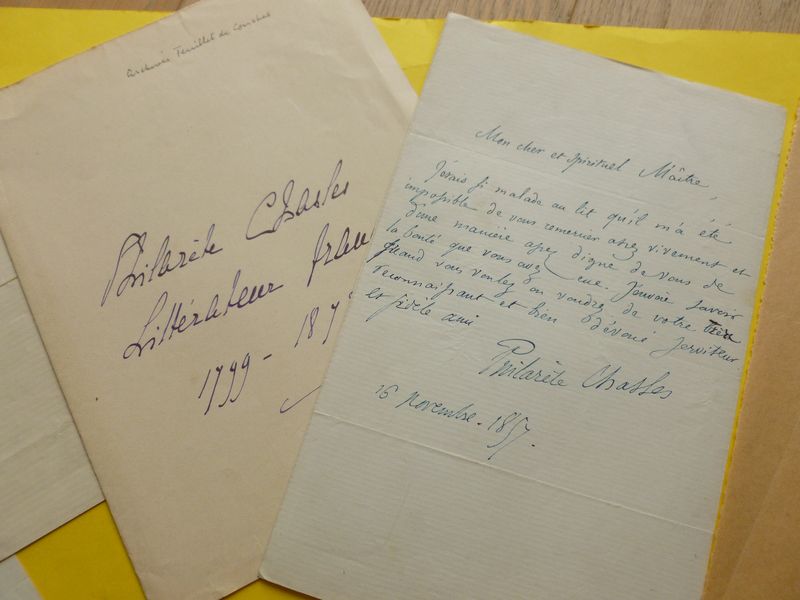 Archives Feuillet de Conches
Philarète Chasles
Littérateur fran
1799 - 187
Mon cher et spirituel Maître,
J'étais si malade au lit qu'il m'a été
impossible de vous remercier assez vivement et
d'une manière assez digne de vous de
la bonté que vous avez eue. J'envoie savoir
quand vous voulez on voudrez de votre très
reconnaissant et bien dévoué serviteur
et fidèle ami
Philarète Chasles
16 novembre - 1857.